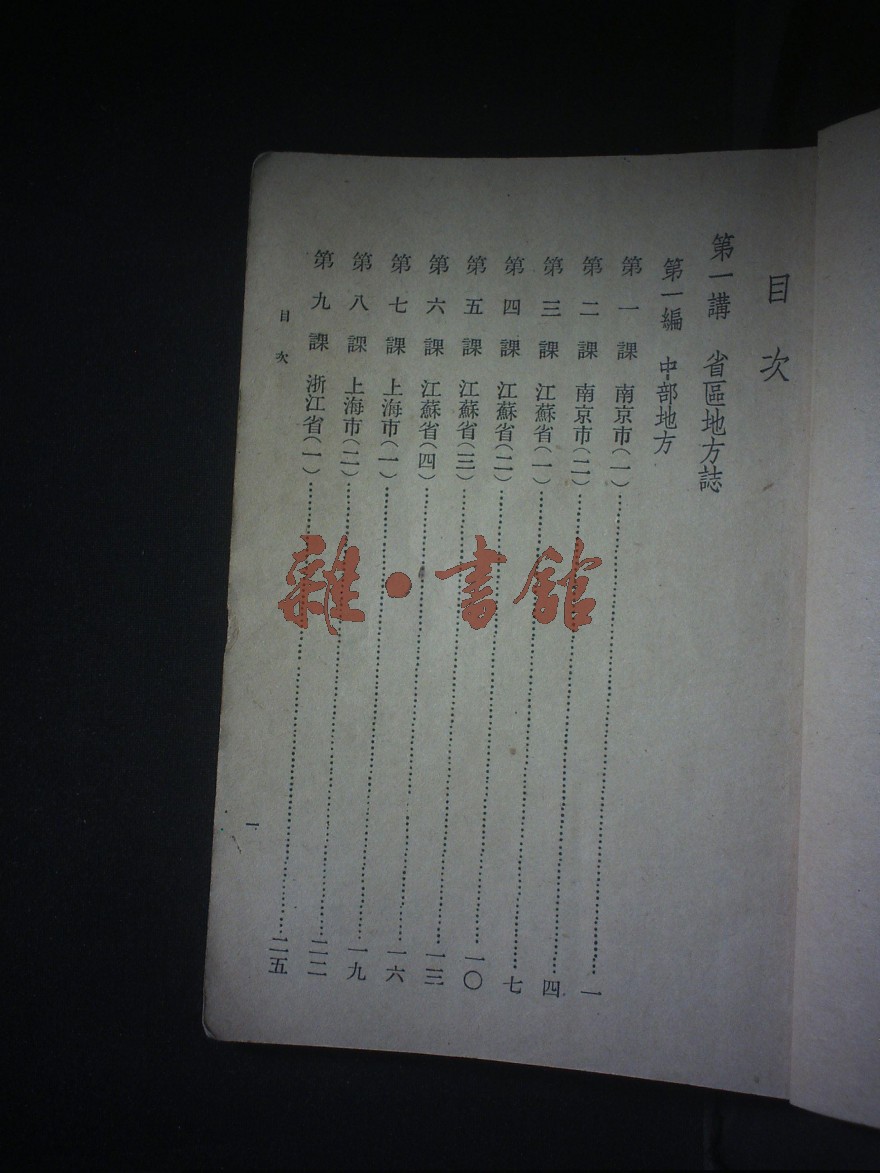 目次
第一講 省區地方誌
第一編 中部地方
第一課 南京市(一)…………一
第二課 南京市(二)…………四
第三課 江蘇省(一)…………七
第四課 江蘇省(二)…………一〇
第五課 江蘇省(三)…………一三
第六課 江蘇省(四)…………一六
第七課 上海市(一)…………一九
第八課 上海市(二)…………二二
第九課 浙江省(一)…………二五
目次
一
雜·書館